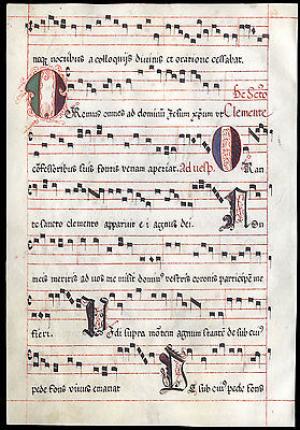 neqȝ noctibus a colloquijs diuinis et oratione cessabat.
De Scto
Oremus omnes ad dominũ Jesum xp̃um vt Clemente
confessoribus suis fontis venam aperiat. Ad vesp. Oran
te sancto clemente apparuit ei agnus dei. Non
meis meritis ad vos me misit domin⁹ vestris coronis participẽ me
fieri. Vidi supra mõtem agnum stantẽ de sub cui⁹
pede fons viuus emanat De sub cui⁹ pede fons